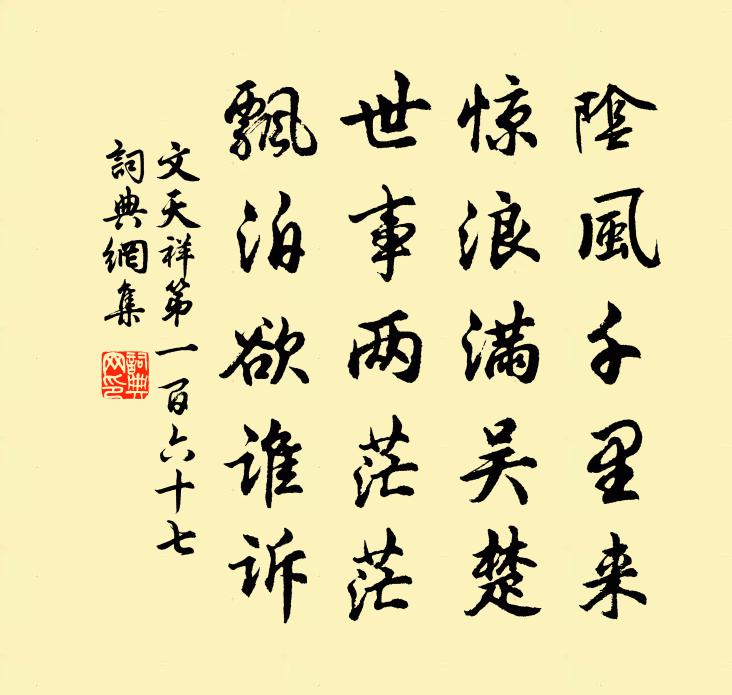 陰風千里来
惊浪滿吴楚
世事两茫茫
飄泊欲誰訴
文天祥第一百六十七
詞典網集
詞典网印